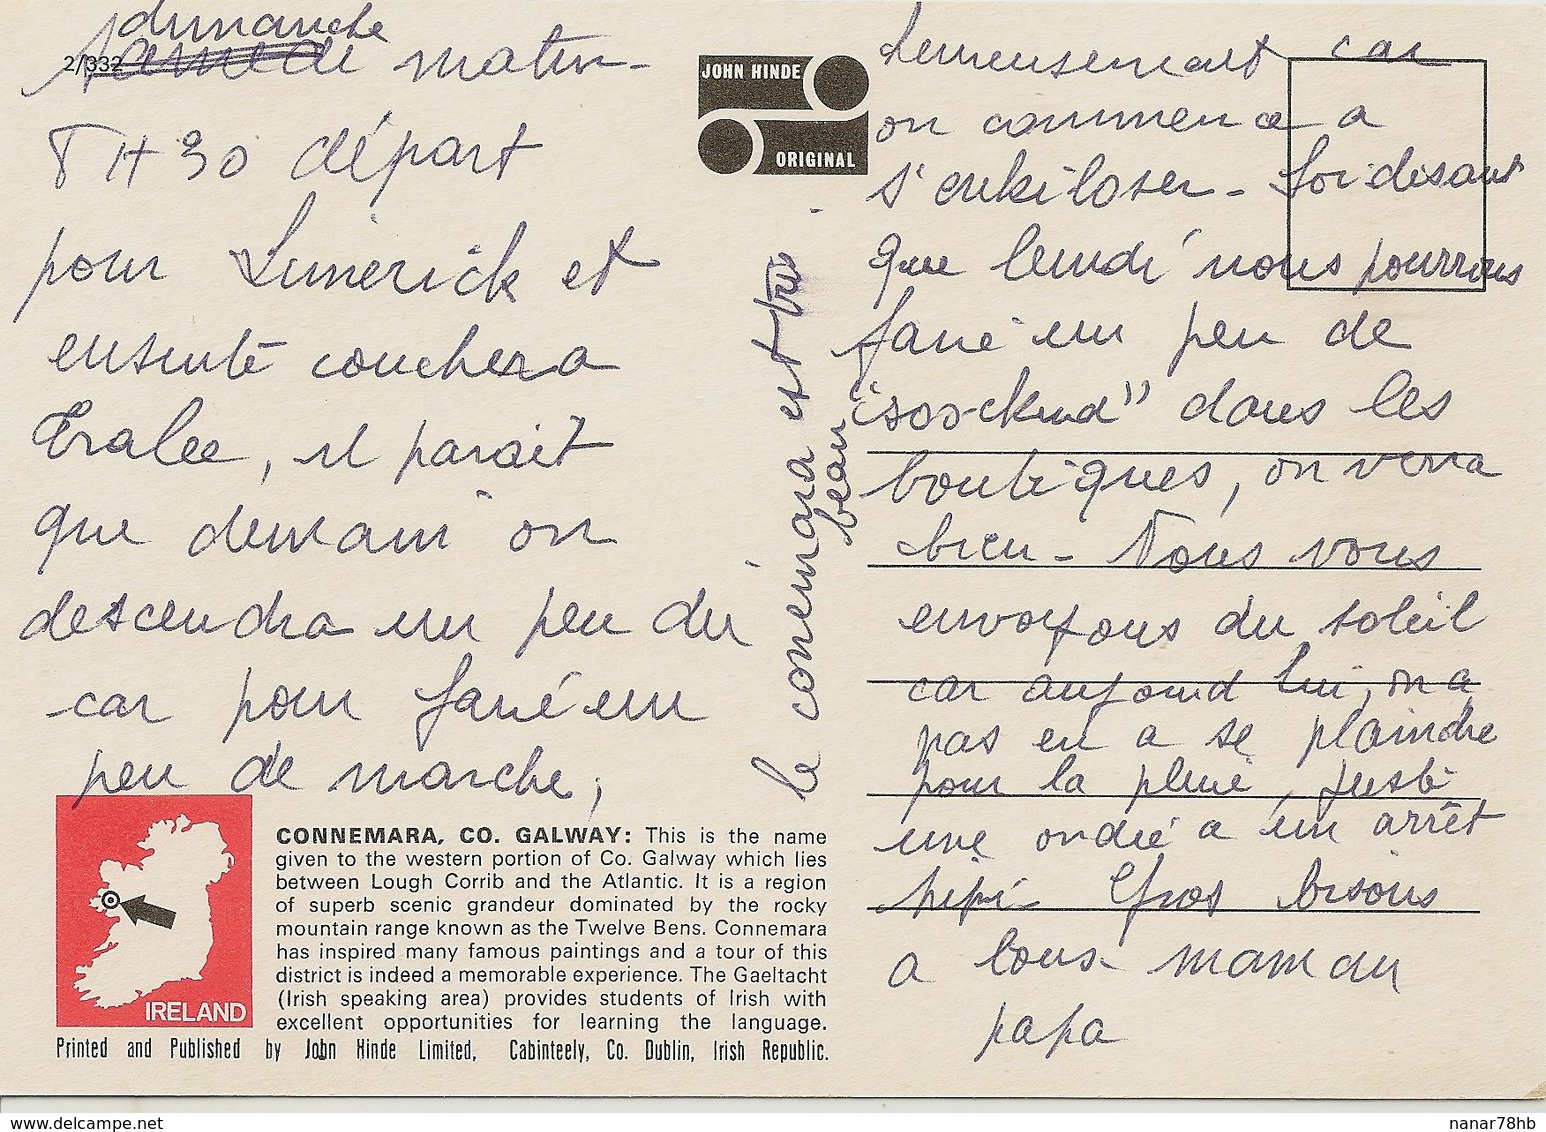 dimanche
2/332 samedi matin -
8 H 30 départ
pour Limerick et
ensuite coucher a
Tralee, il parait
que demain on
descendra un peu du
car pour faire un
peu de marche,
CONNEMARA, CO. GALWAY: This is the name
given to the western portion of Co. Galway which lies
between Lough Corrib and the Atlantic. It is a region
of superb scenic grandeur dominated by the rocky
mountain range known as the Twelve Bens. Connemara
has inspired many famous paintings and a tour of this
district is indeed a memorable experience. The Gaeltacht
(Irish speaking area) provides students of Irish with
excellent opportunities for learning the language.
IRELAND
Printed and Published by John Hinde Limited, Cabinteely, Co. Dublin, Irish Republic.
JOHN HINDE
ORIGINAL
le conémara est très
beau
heureusement car
on commence a
s'enkiloser - Soi-disant
que lundi nous pourrons
faire un peu de
dans les
boutiques, on verra
bien - Nous vous
envoyons du soleil
car aujourd'hui, on a
pas eu a se plaindre
pour la pluie, juste
une ondée a un arrêt
pipi - Gros bisous
a tous - maman
papa
nanar78hb